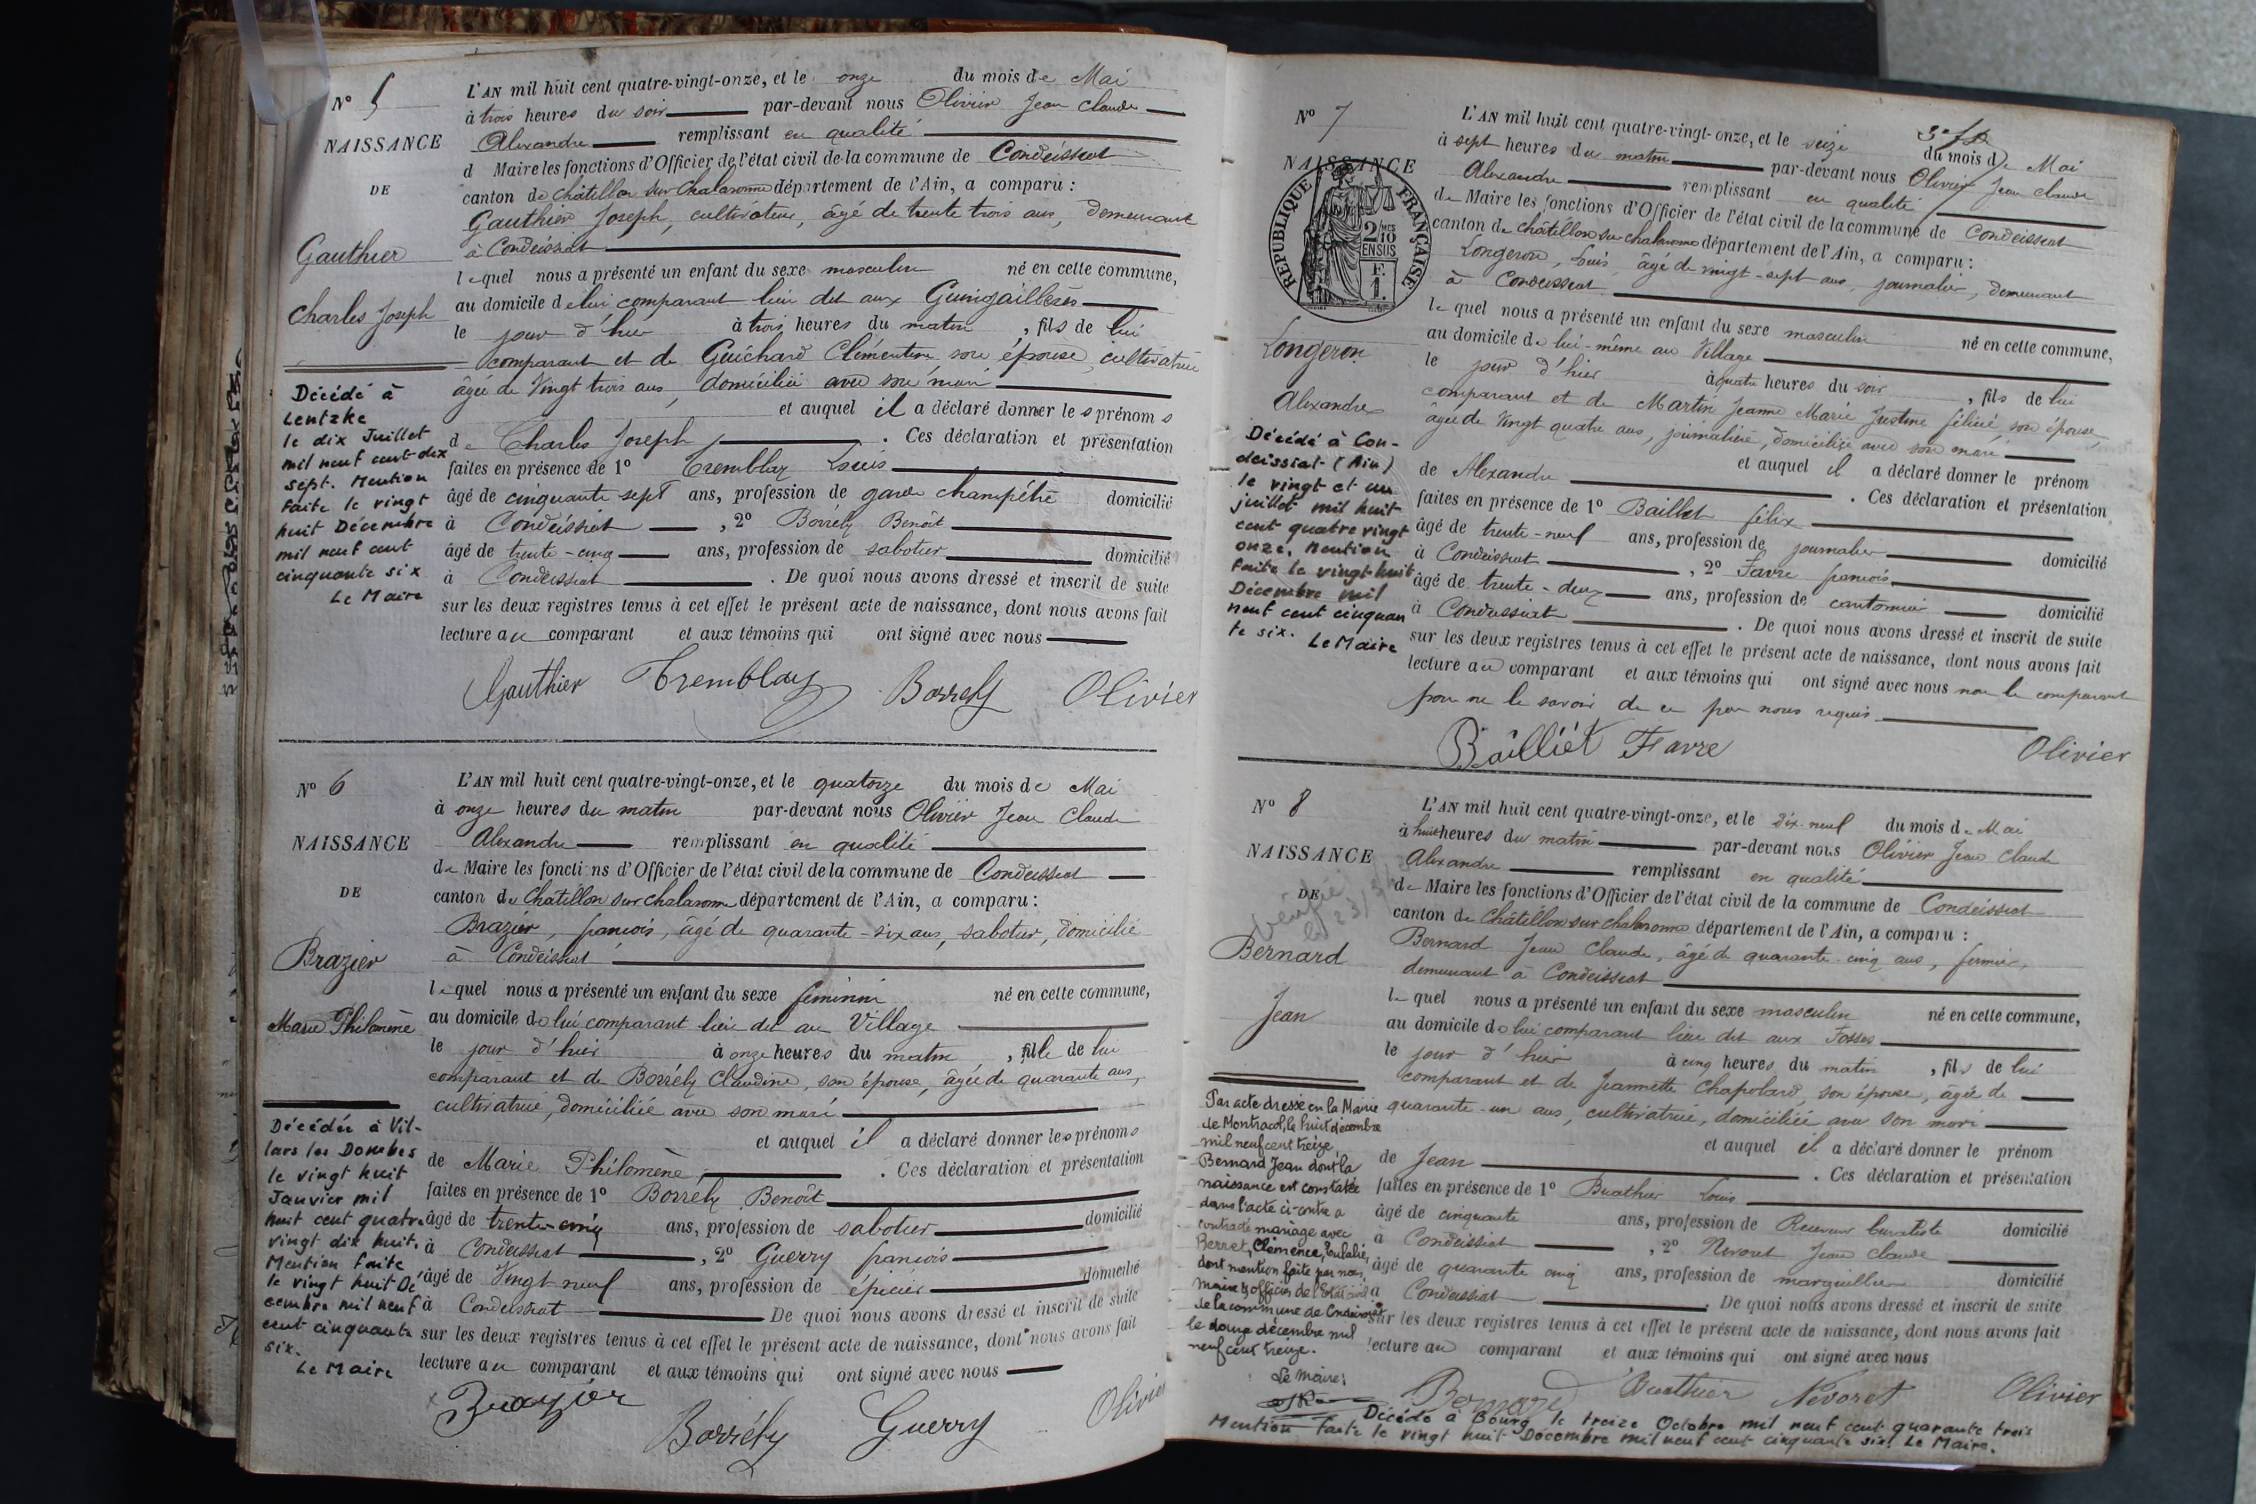 N° 5
NAISSANCE
DE
Gauthier
Charles Joseph
Décédé à
Lentzke
le dix Juillet
mil neuf cent dix
sept. Mention
faite le vingt
huit Décembre
mil neuf cent
cinquante six
Le Maire
L'AN mil huit cent quatre-vingt-onze, et le onze du mois de Mai
à trois heures du soir par-devant nous Olivier Jean Claude
Alexandre remplissant en qualité
d Maire les fonctions d'Officier de l'état civil de la commune de Condeissiat
canton de Châtillon sur Chalaronne département de l'Ain, a comparu :
Gauthier Joseph, cultivateur, âgé de trente trois ans, demeurant
à Condeissiat
lequel nous a présenté un enfant du sexe masculin né en cette commune,
au domicile de lui comparant lieu dit aux
le jour d'hier à trois heures du matin, fils de lui
comparant et de Guichard Clémentine son épouse, cultivatrice
âgée de Vingt trois ans, domiciliée avec son mari
et auquel il a déclaré donner les prénoms
de Charles Joseph. Ces déclaration et présentation
faites en présence de 1° Tremblay Louis
âgé de cinquante sept ans, profession de garde champêtre domicilié
à Condeissiat, 2° Borrély Benoît
âgé de trente-cinq ans, profession de sabotier domicilié
à Condeissiat. De quoi nous avons dressé et inscrit de suite
sur les deux registres tenus à cet effet le présent acte de naissance, dont nous avons fait
lecture au comparant et aux témoins qui ont signé avec nous
Gauthier Tremblay Borrély Olivier
N° 6
NAISSANCE
DE
Brazier
Marie Philomène
Décédée à Vil-
lars les Dombes
le vingt huit
Janvier mil
huit cent quatre
vingt dix huit.
Mention faite
le vingt huit Dé
cembre mil neuf
cent cinquante
six.
Le Maire
L'AN mil huit cent quatre-vingt-onze, et le quatorze du mois de Mai
à onze heures du matin par-devant nous Olivier Jean Claude
Alexandre remplissant en qualité
de Maire les fonctions d'Officier de l'état civil de la commune de Condeissiat
canton de Châtillon sur Chalaronne département de l'Ain, a comparu :
Brazier, françois, âgé de quarante-six ans, sabotier, domicilié
à Condeissiat
lequel nous a présenté un enfant du sexe féminin né en cette commune,
au domicile de lui comparant lieu dit au Village
le jour d'hier à onze heures du matin, fille de lui
comparant et de Borrély Claudine, son épouse, âgée de quarante ans,
cultivatrice, domiciliée avec son mari
et auquel il a déclaré donner les prénoms
de Marie Philomène. Ces déclaration et présentation
faites en présence de 1° Borrély Benoît
âgé de trente-cinq ans, profession de sabotier domicilié
à Condeissiat, 2° Guerry françois
âgé de Vingt-neuf ans, profession de épicier domicilié
à Condeissiat De quoi nous avons dressé et inscrit de suite
sur les deux registres tenus à cet effet le présent acte de naissance, dont nous avons fait
lecture au comparant et aux témoins qui ont signé avec nous
Brazier Borrély Guerry Olivier
N° 7
NAISSANCE
RÉPUBLIQUE FRANÇAISE
2 MES 10 EN SUS
Longeron
Alexandre
Décédé à Con-
deissiat (Ain)
le vingt et un
juillet mil huit
cent quatre vingt
onze. Mention
faite le vingt huit
Décembre mil
neuf cent cinquan
te six.
Le Maire
L'AN mil huit cent quatre-vingt-onze, et le seize du mois de Mai
à sept heures du matin par-devant nous Olivier Jean Claude
Alexandre remplissant en qualité
de Maire les fonctions d'Officier de l'état civil de la commune de Condeissiat
canton de Châtillon sur Chalaronne département de l'Ain, a comparu :
Longeron, Louis, âgé de vingt-sept ans, journalier, demeurant
à Condeissiat
lequel nous a présenté un enfant du sexe masculin né en cette commune,
au domicile de lui-même au Village
le jour d'hier à quatre heures du soir, fils de lui
comparant et de Martin Jeanne Marie Justine félicie, son épouse,
âgée de Vingt quatre ans, journalière, domiciliée avec son mari
et auquel il a déclaré donner le prénom
de Alexandre. Ces déclaration et présentation
faites en présence de 1° Baillet félix
âgé de trente-neuf ans, profession de journalier domicilié
à Condeissiat, 2° Favre françois
âgé de trente-deux ans, profession de cantonnier domicilié
à Condeissiat. De quoi nous avons dressé et inscrit de suite
sur les deux registres tenus à cet effet le présent acte de naissance, dont nous avons fait
lecture au comparant et aux témoins qui ont signé avec nous non le comparant
pour ne le savoir de ce par nous requis
Bailliét Favre Olivier
N° 8
NAISSANCE
DE
Bernard
Jean
Par acte dressé en la Mairie
de Montracol, le huit décembre
mil neuf cent treize,
Bernard Jean dont la
naissance est constatée
dans l'acte ci-contre a
contracté mariage avec
Berret, Clémence, Eulalie,
dont mention faite par nous,
Maire & officier de l'Etat civil
de la commune de Condeissiat
le douze décembre mil
neuf cent treize.
Le Maire:
L'AN mil huit cent quatre-vingt-onze, et le dix-neuf du mois de Mai
à huit heures du matin par-devant nous Olivier Jean Claude
Alexandre remplissant en qualité
de Maire les fonctions d'Officier de l'état civil de la commune de Condeissiat
canton de Châtillon sur Chalaronne département de l'Ain, a comparu :
Bernard Jean Claude, âgé de quarante-cinq ans, fermier,
demeurant à Condeissiat
lequel nous a présenté un enfant du sexe masculin né en cette commune,
au domicile de lui comparant lieu dit aux Fosses
le jour d'hier à cinq heures du matin, fils de lui
comparant et de Jeannette Chapolard, son épouse, âgée de
quarante-un ans, cultivatrice, domiciliée avec son mari
et auquel il a déclaré donner le prénom
de Jean. Ces déclaration et présentation
faites en présence de 1° Buathier Louis
âgé de cinquante ans, profession de Receveur buraliste domicilié
à Condeissiat, 2° Nevoret Jean Claude
âgé de quarante cinq ans, profession de marguillier domicilié
à Condeissiat. De quoi nous avons dressé et inscrit de suite
sur les deux registres tenus à cet effet le présent acte de naissance, dont nous avons fait
lecture au comparant et aux témoins qui ont signé avec nous
Bernard Buathier Nevoret Olivier
Décédé à Bourg le treize Octobre mil neuf cent quarante trois
Mention faite le vingt huit Décembre mil neuf cent cinquante six. Le Maire.